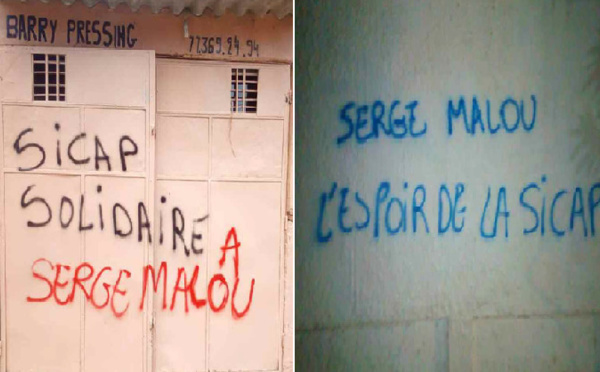 BARRY PRESSING
77.369.24.94
SICAP
SOLIDAIRE A
SERGE MALOU
SERGE MALOU
L'ESPOIR DE LA SICAP